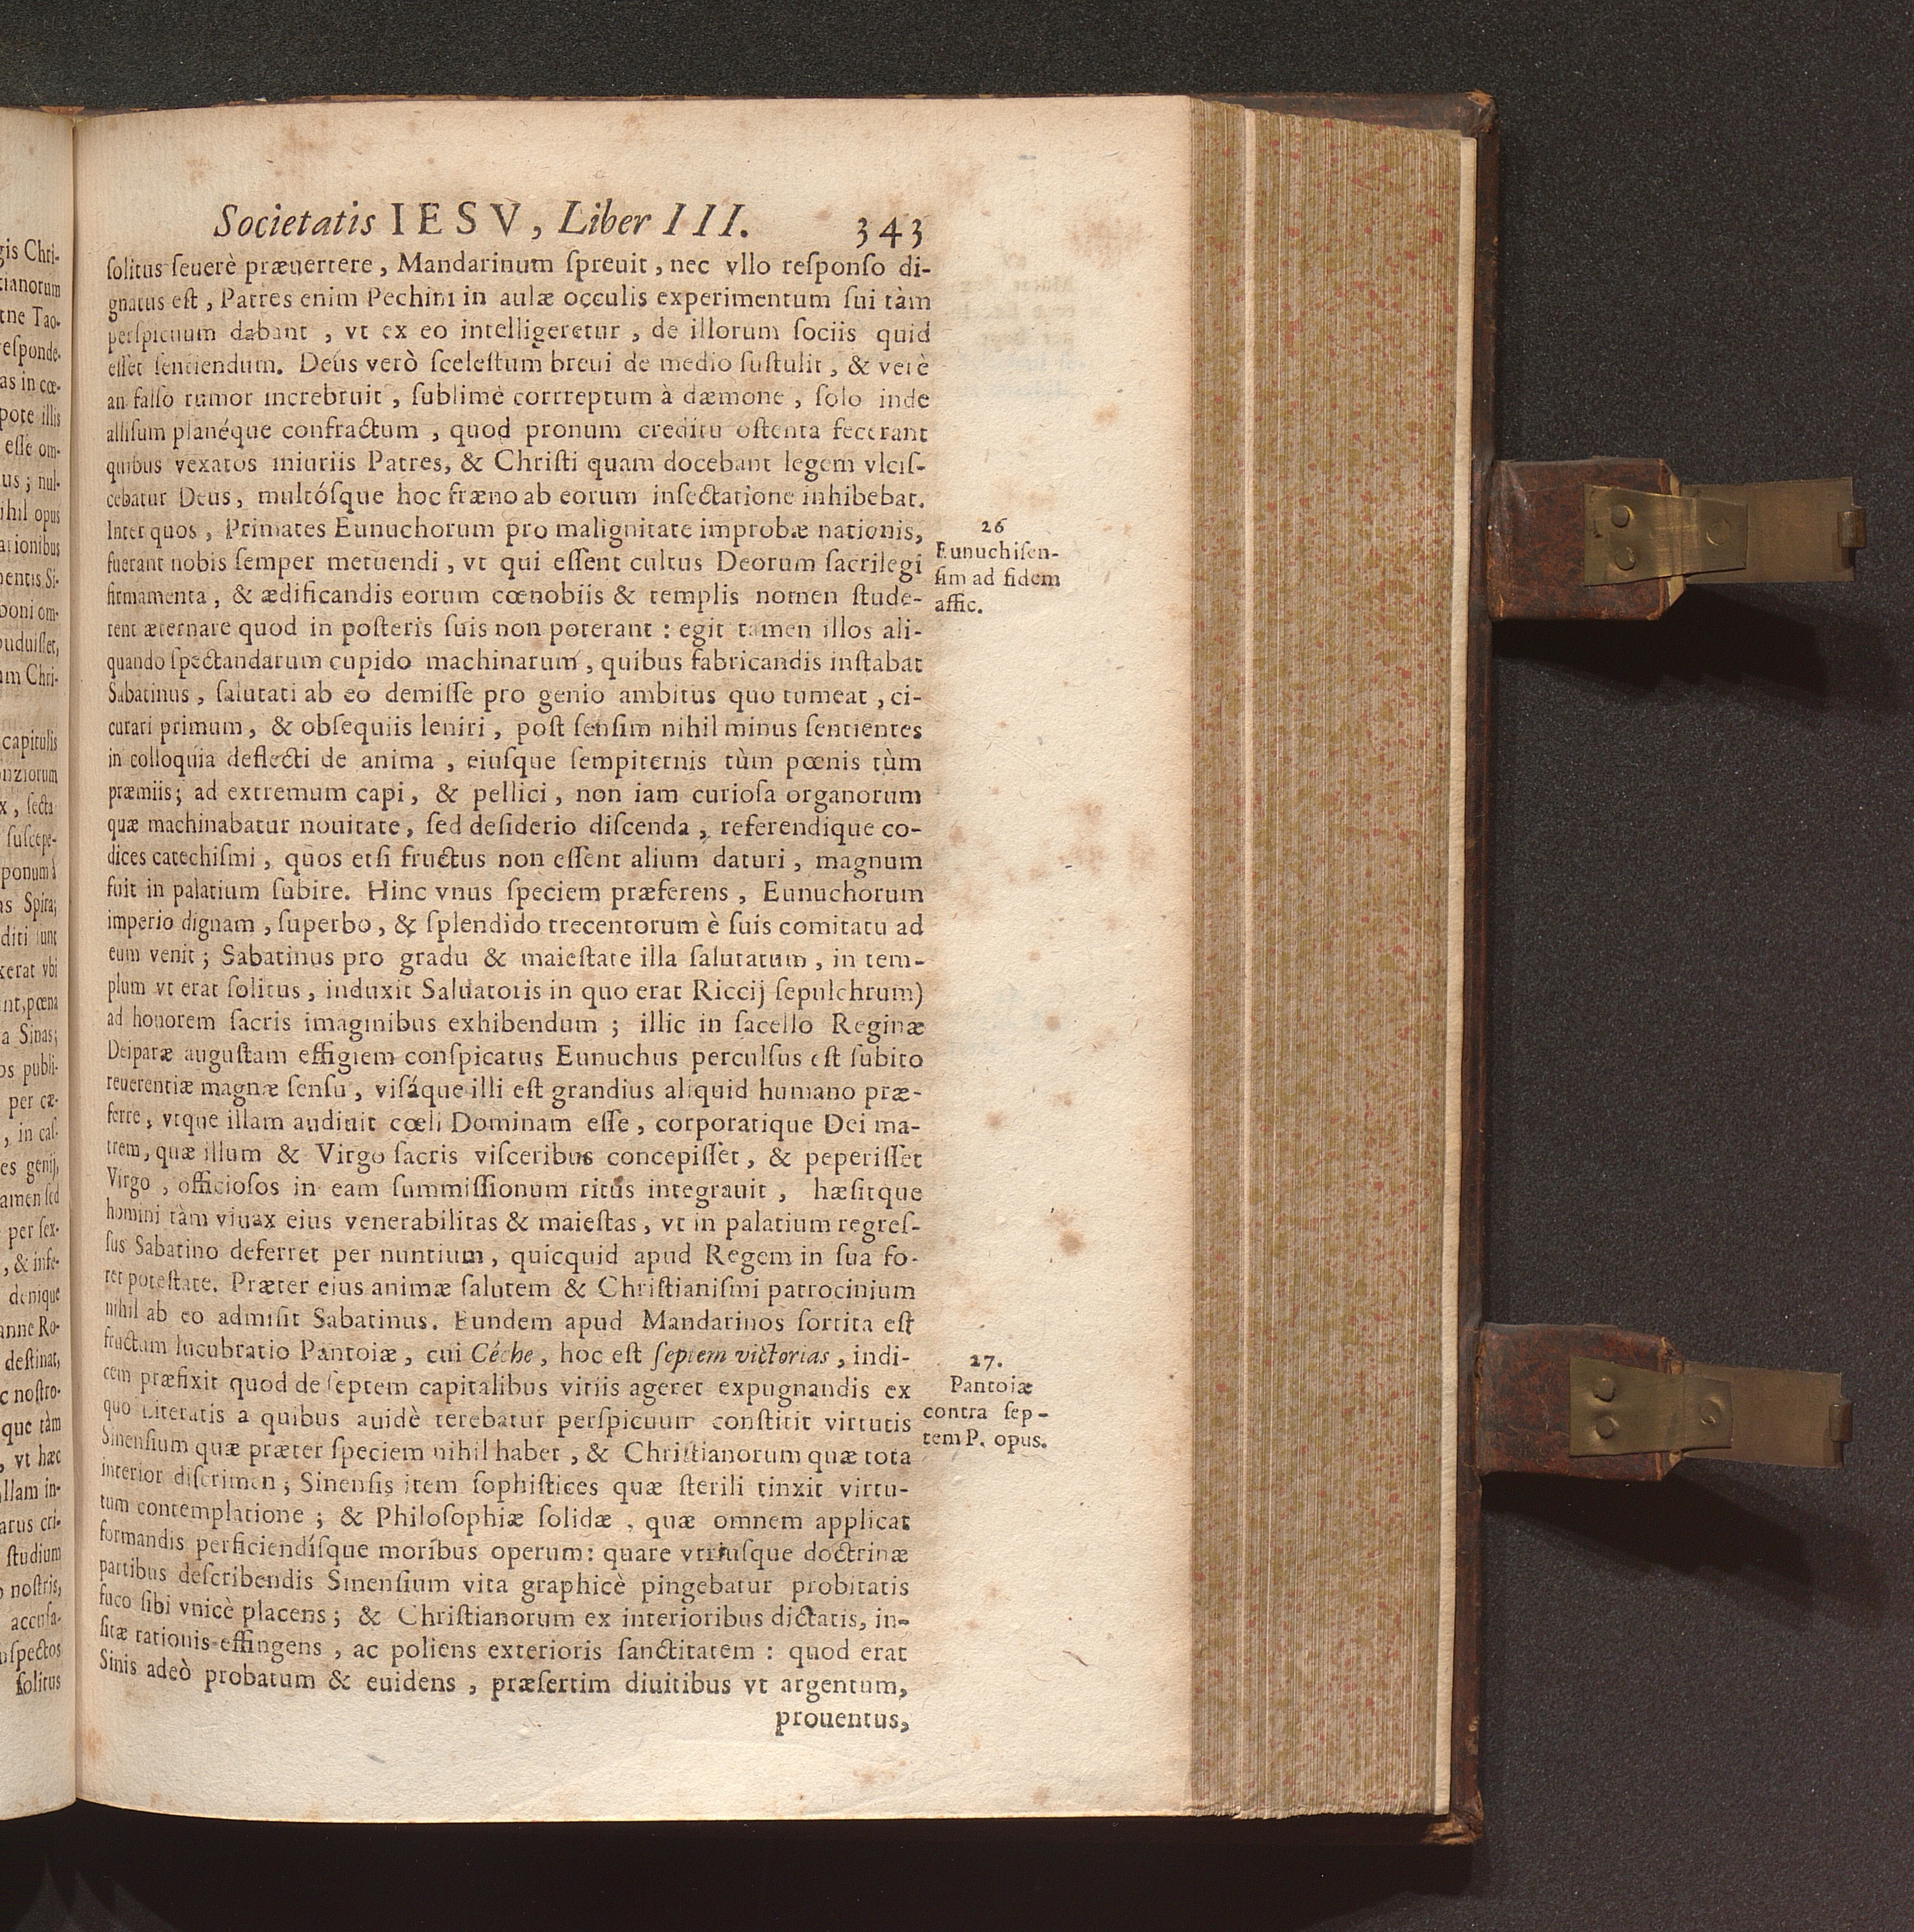 Societatis IESV, Liber III. 343
ſolitus ſeuerè præuertere, Mandarinum ſpreuit, nec vllo reſponſo di-
gnatus eſt, Patres enim Pechini in aulæ occulis experimentum ſui tàm
perſpicuum dabant, vt ex eo intelligeretur, de illorum ſociis quid
eſſet ſentiendum. Deus verò ſceleſtum breui de medio ſuſtulit, & verè
an falſò rumor increbruit, ſublimè corrreptum à dæmone, ſolo inde
alliſum planéque confractum, quod pronum creditu oſtenta fecerant
quibus vexatos iniuriis Patres, & Chriſti quam docebant legem vlciſ-
cebatur Deus, multóſque hoc fræno ab eorum inſectatione inhibebat.
Inter quos, Primates Eunuchorum pro malignitate improbæ nationis,
fuerant nobis ſemper metuendi, vt qui eſſent cultus Deorum ſacrilegi
firmamenta, & ædificandis eorum cœnobiis & templis nomen ſtude-
rent æternare quod in poſteris ſuis non poterant: egit tamen illos ali-
quando ſpectandarum cupido machinarum, quibus fabricandis inſtabat
Sabatinus, ſalutati ab eo demiſſe pro genio ambitus quo tumeat, ci-
curari primum, & obſequiis leniri, poſt ſenſim nihil minus ſentientes
in colloquia deflecti de anima, eiuſque ſempiternis tùm pœnis tùm
præmiis; ad extremum capi, & pellici, non iam curioſa organorum
quæ machinabatur nouitate, ſed deſiderio diſcenda, referendique co-
dices catechiſmi, quos etſi fructus non eſſent alium daturi, magnum
fuit in palatium ſubire. Hinc vnus ſpeciem præferens, Eunuchorum
imperio dignam, ſuperbo, & ſplendido trecentorum è ſuis comitatu ad
eum venit; Sabatinus pro gradu & maieſtate illa ſalutatum, in tem-
plum vt erat ſolitus, induxit Saluatoris in quo erat Riccij ſepulchrum)
ad honorem ſacris imaginibus exhibendum; illic in ſacello Reginæ
Deiparæ auguſtam effigiem conſpicatus Eunuchus perculſus eſt ſubito
reuerentiæ magnæ ſenſu, viſáque illi eſt grandius aliquid humano præ-
ferre, vtque illam audiuit cœli Dominam eſſe, corporatique Dei ma-
trem, quæ illum & Virgo ſacris viſceribus concepiſſet, & peperiſſet
Virgo, officioſos in eam ſummiſſionum ritus integrauit, hæſitque
homini tàm viuax eius venerabilitas & maieſtas, vt in palatium regreſ-
ſus Sabatino deferret per nuntium, quicquid apud Regem in ſua fo-
ret poteſtate. Præter eius animæ ſalutem & Chriſtianiſmi patrocinium
nihil ab eo admiſit Sabatinus. Eundem apud Mandarinos ſortita eſt
fructum lucubratio Pantoiæ, cui Céche, hoc eſt ſeptem victorias, indi-
cem præfixit quod de ſeptem capitalibus vitiis ageret expugnandis ex
quo Literatis a quibus auidè terebatur perſpicuum conſtitit virtutis
Sinenſium quæ præter ſpeciem nihil habet, & Chriſtianorum quæ tota
interior diſcrimen; Sinenſis item ſophiſtices quæ ſterili tinxit virtu-
tum contemplatione; & Philoſophiæ ſolidæ, quæ omnem applicat
formandis perficiendíſque moribus operum: quare vtriuſque doctrinæ
partibus deſcribendis Sinenſium vita graphicè pingebatur probitatis
fuco ſibi vnicè placens; & Chriſtianorum ex interioribus dictatis, in-
ſitæ rationis effingens, ac poliens exterioris ſanctitatem: quod erat
Sinis adeò probatum & euidens, præſertim diuitibus vt argentum,
prouentus,
26
Eunuchi ſen-
ſim ad fidem
affic.
27.
Pantoiæ
contra ſep-
tem P. opus.
gis Chri-
tianorum
tne Tao-
eſponde-
as in cœ-
pote illis
eſſe om-
us; nul-
ihil opus
ationibus
mentis Si-
boni om-
puduiſſet,
um Chri-
capitulis
onziorum
x, ſecta
ſuſcepe-
ponum à
as Spira;
diti ſunt
xerat vbi
nt, pœna
a Sinas;
os publi-
per cæ-
, in caſ-
es genij,
amen ſed
per ſex-
, & inſe-
denique
anne Ro-
deſtinat,
c noſtro-
que tàm
, vt hæc
illam in-
arus cri-
ſtudium
noſtris,
accuſa-
uſpectos
ſolitus